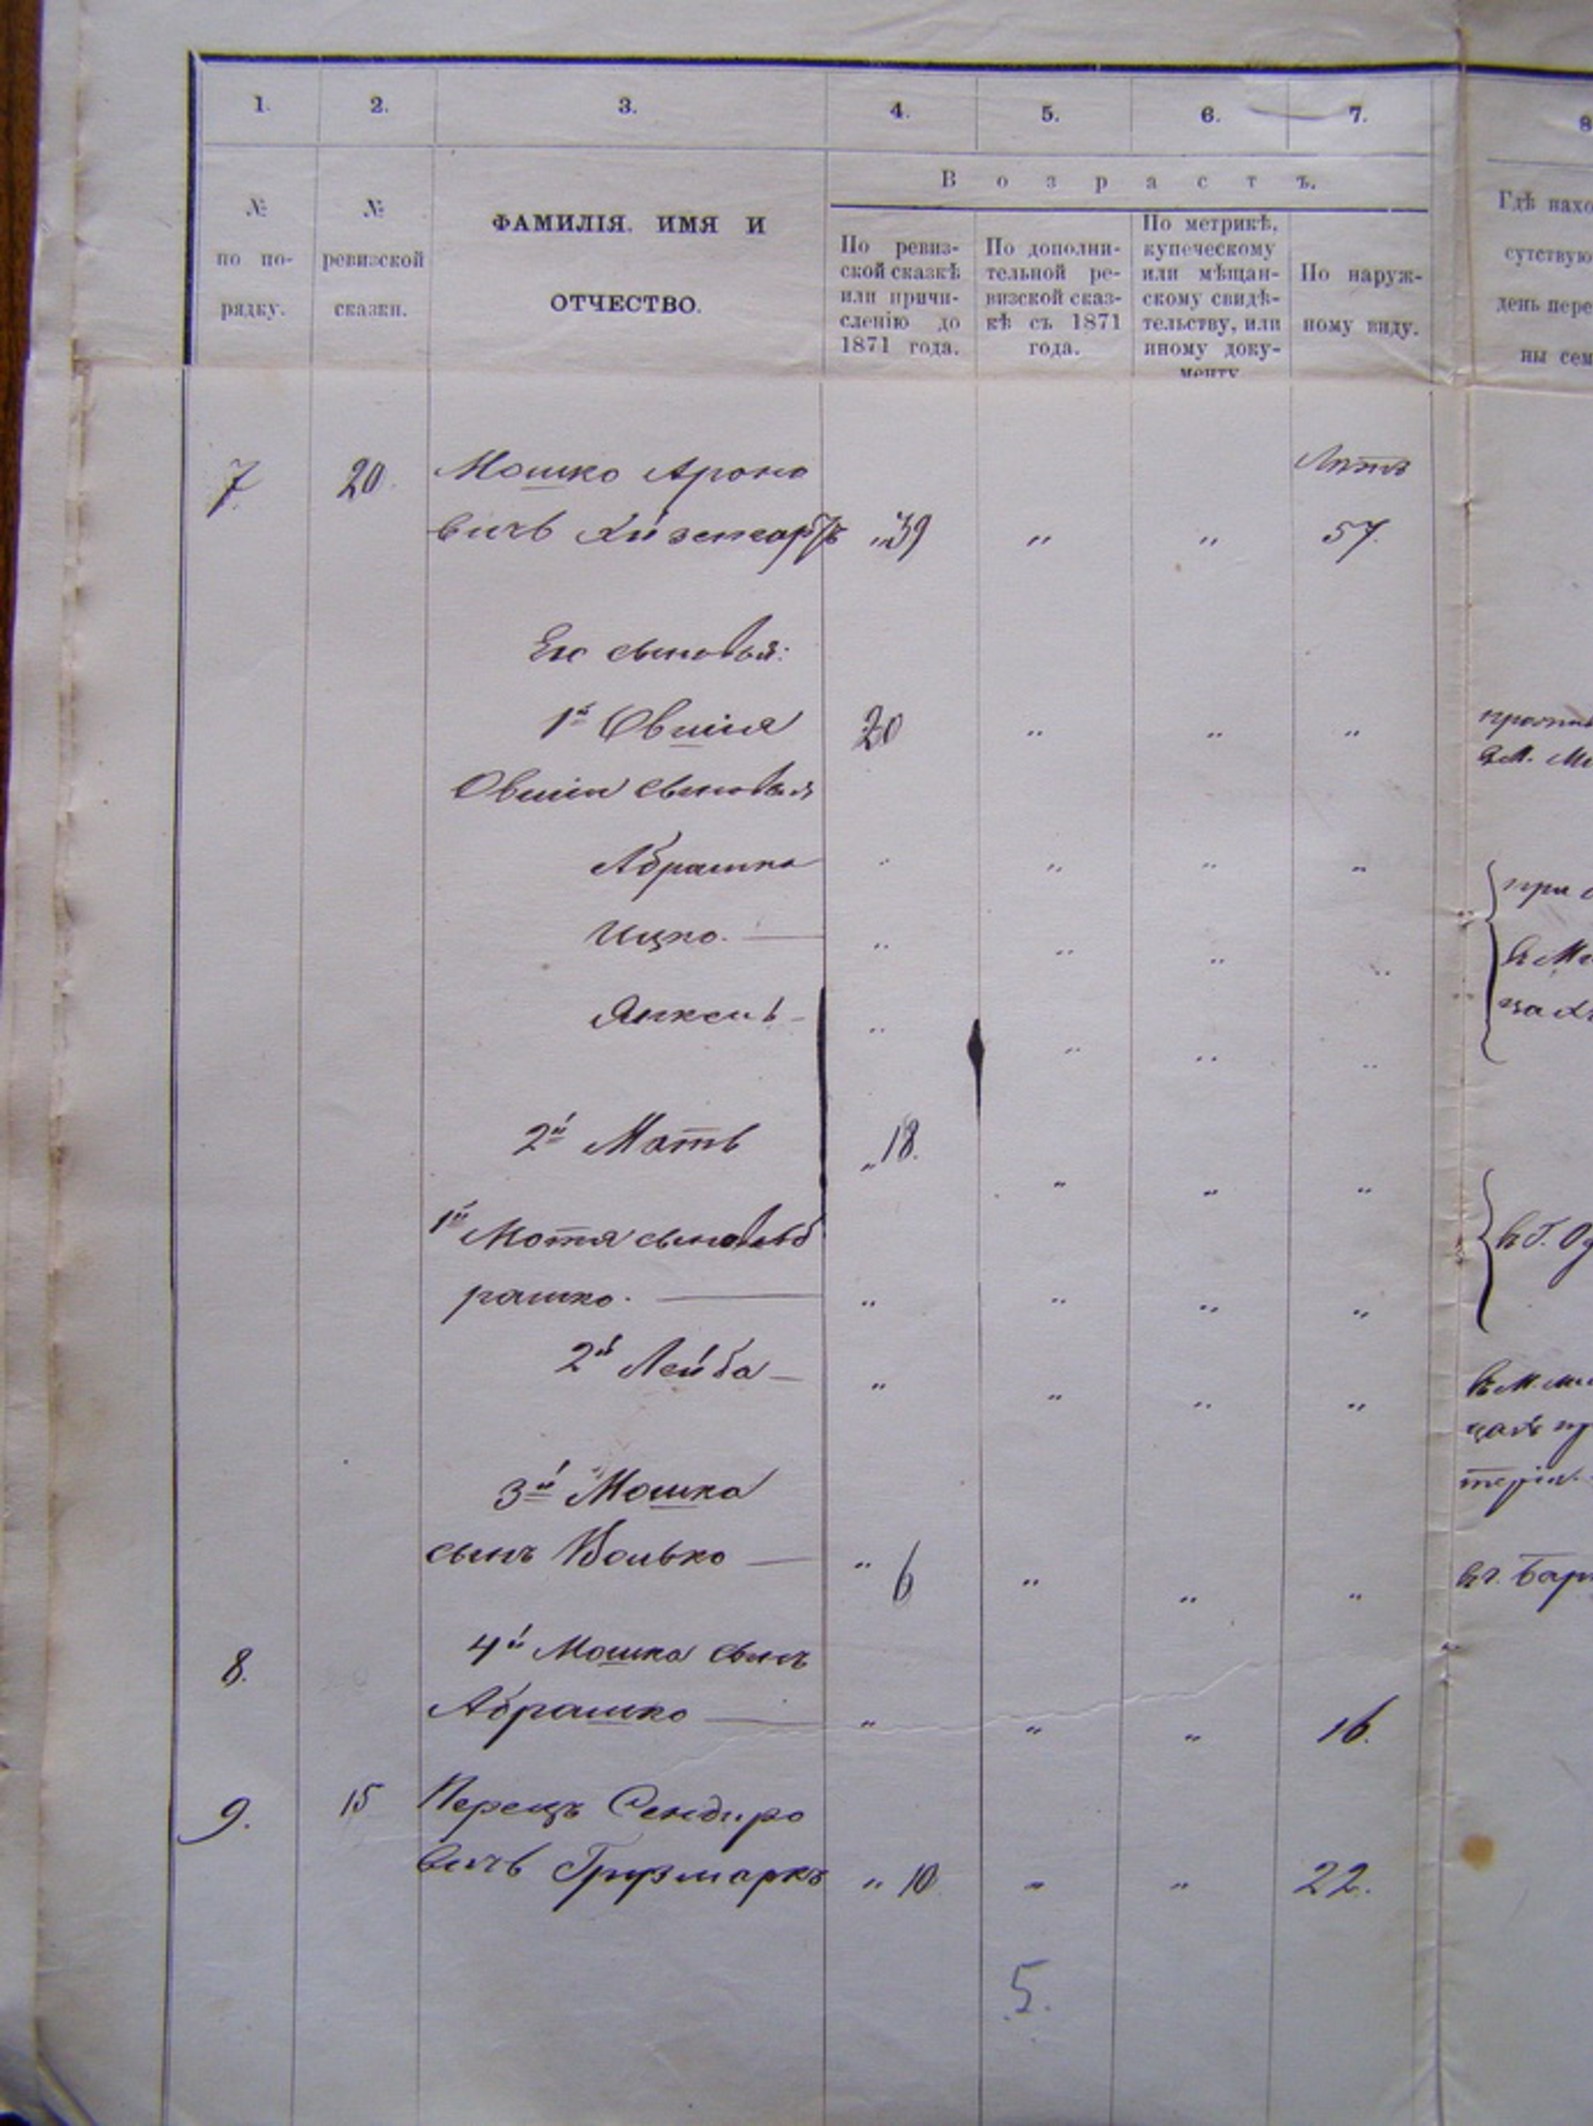 1. 2. 3. 4. 5. 6. 7. 8
В о з р а с т ъ.
№ по по- рядку.
№ ревизской сказки.
ФАМИЛІЯ, ИМЯ И
ОТЧЕСТВО.
По ревиз-
ской сказкѣ
или причи-
сленію до
1871 года.
По дополни-
тельной ре-
визской сказ-
кѣ съ 1871
года.
По метрикѣ,
купеческому
или мѣщан-
скому свидѣ-
тельству, или
иному доку-
менту
По наруж-
ному виду.
Гдѣ нахо
сутствую
день пере
ны сем
7 20. Мошко Ароно Лѣтъ
вичъ „39 „ „ 57.
Его сыновья:
1й Овшія 20 „ „ „
Овшіи сыновья
Абрашко „ „ „ „
Ицко. — „ „ „ „
Янкель – „ „ „ „
2й Моть „18. „ „ „
1й Мотя сыновья Аб
рашко. — „ „ „ „
2й Лейба – „ „ „ „
3й Мошка
сынъ Волько — „ 6 „ „ „
8. 4й Мошка сынъ
Абрашко — „ „ „ 16.
9. 15 Перецъ Сендиро
вичъ Грузмаркъ „ 10 „ „ 22.
при
въ М
въ Г. Од
въ М.
теріи.
въ г.
5.